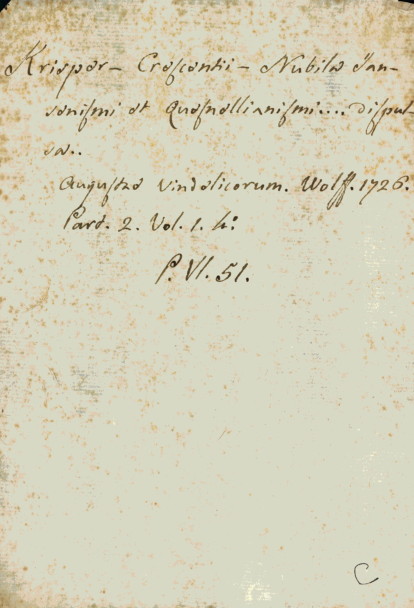 Krisper - Crescentii - Nubila Jan-
senismi et Quesnellianismi.... dispul-
sa..
Augustæ Vindelicorum. Wolff. 1726.
Part. 2. Vol. 1. 4º
P. VI. 51.
C